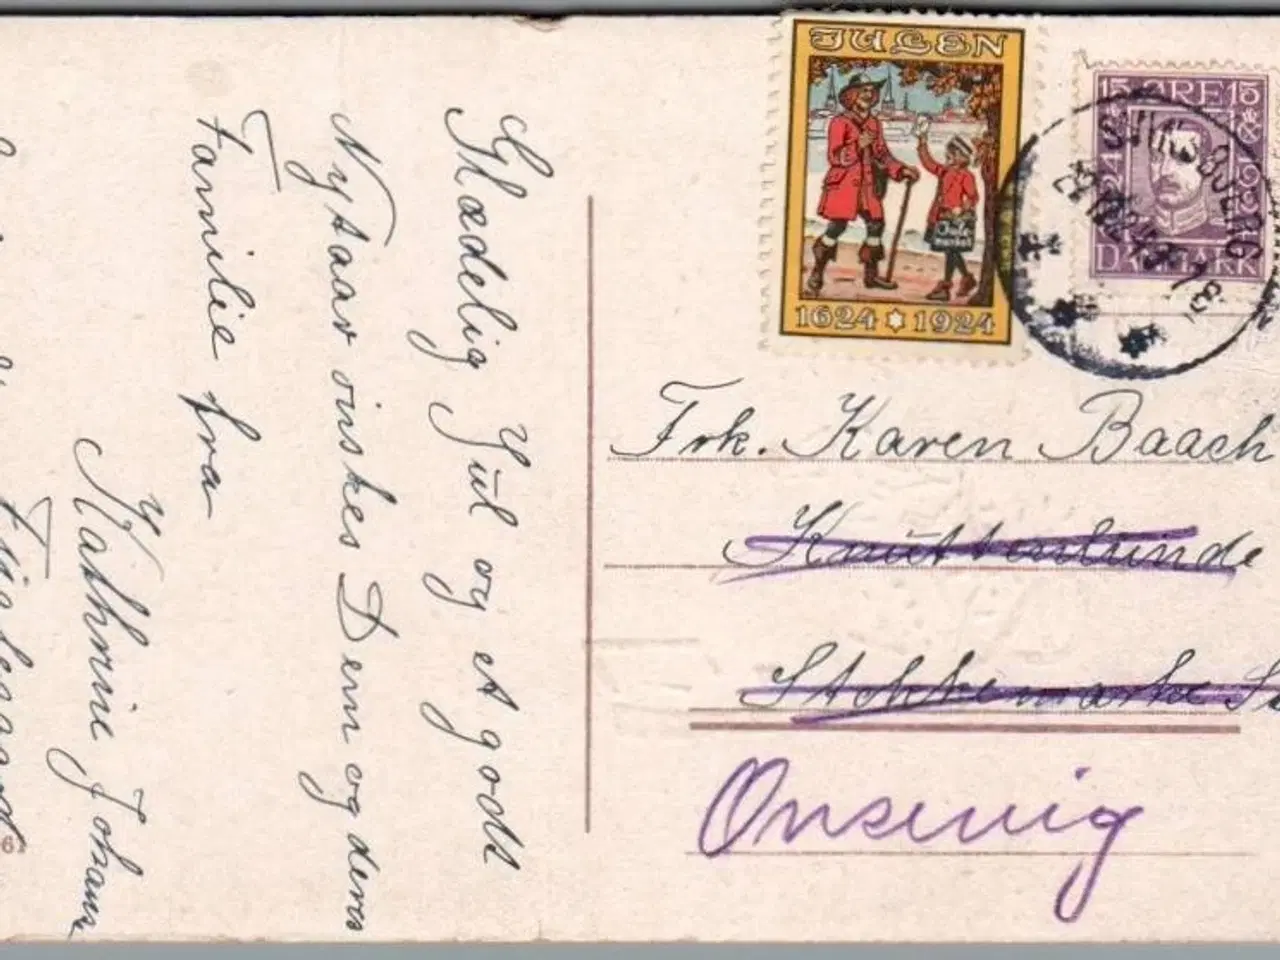 Glædelig Jul og et godt
Nytaar önskes Dem og deres
Familie fra
Kathrine Johann
JULEN
Jule
mærket
1624 1924
15 ØRE 15
DANMARK
Frk. Karen Baach
Knuttenlunde
Stokkemarke
Onsevig